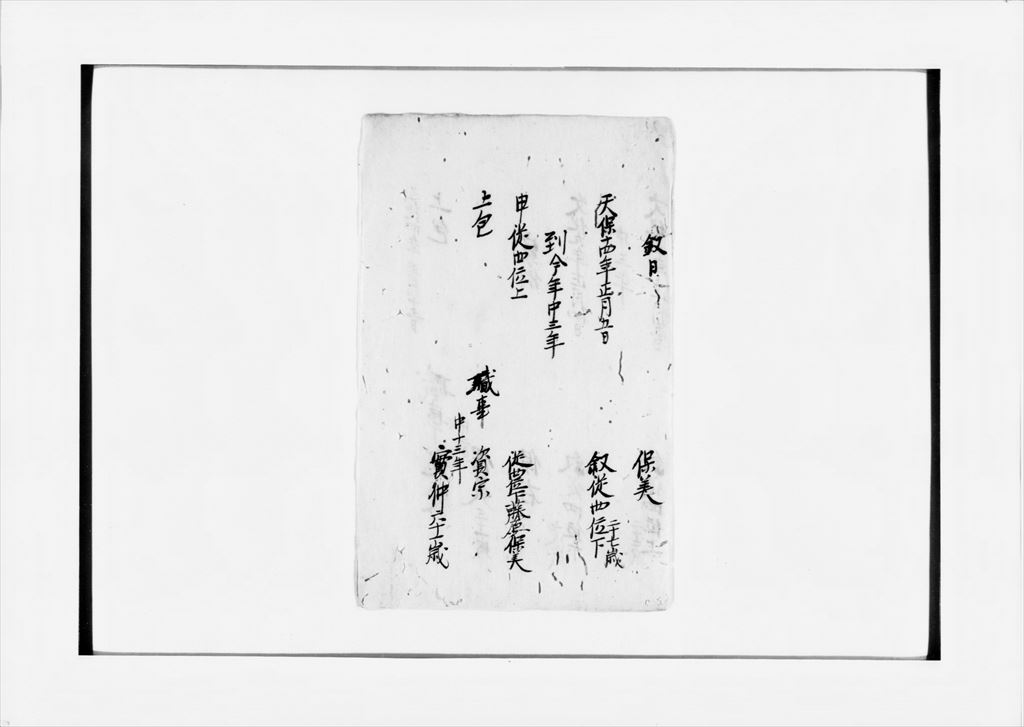 叙日 保美
二十七歳
天保十四年正月五日 叙従四位下
到今年中三年
申従四位上
従四位下藤原保美
上包
職事 資宗
中十三年
實仲六十一歳